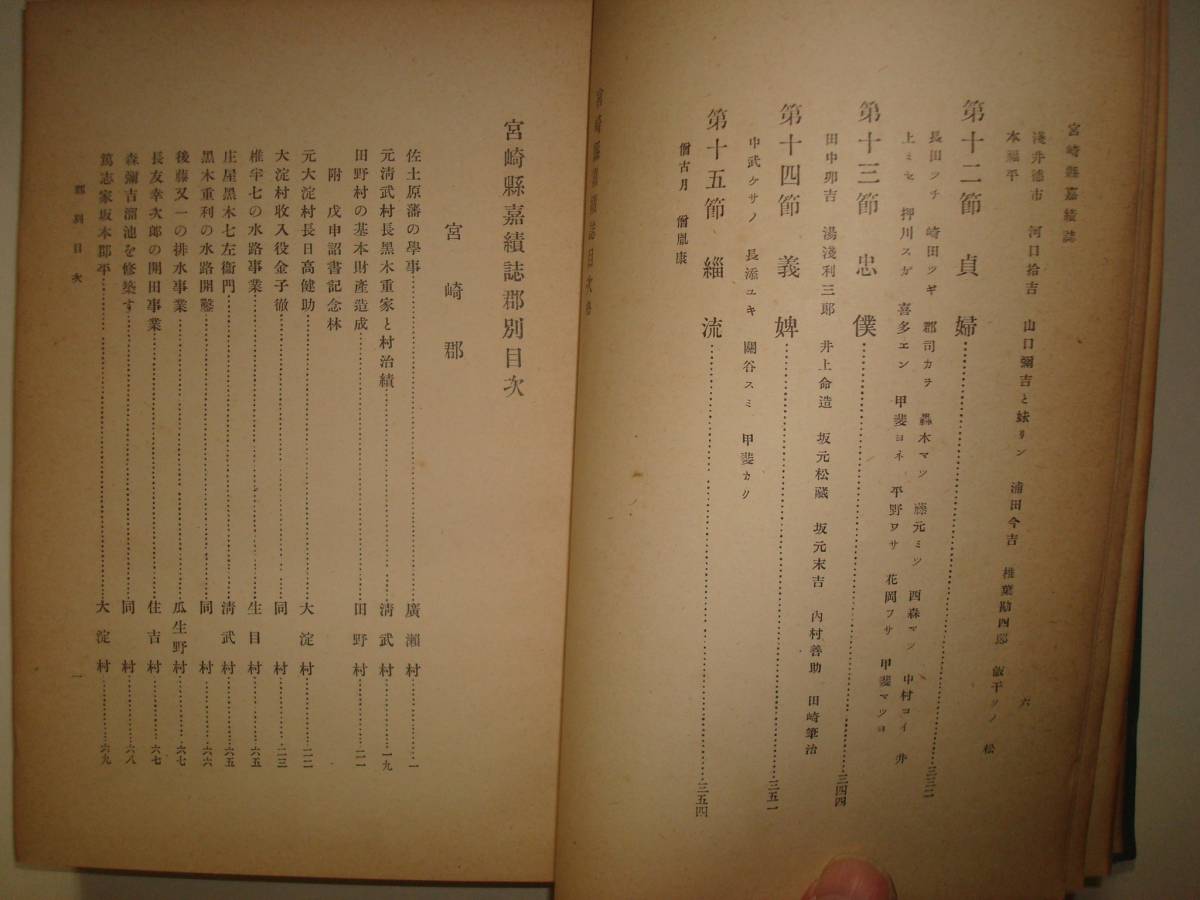 宮崎縣嘉績誌
六
淺井德市 河口拾吉 山口彌吉と妹リン 浦田今吉 椎葉勘四郎 飯干ソノ 松
本福平
第十二節 貞婦…………三三二
長田ツチ 崎田ツギ 郡司カヲ 轟木マツ 藤元ミツ 西森マツ 中村コイ 井
上ミセ 押川スガ 喜多エン 甲斐ヨネ 平野ワサ 花岡フサ 甲斐マツヨ
第十三節 忠僕…………三四四
田中卯吉 湯淺利三郎 井上命造 坂元松藏 坂元末吉 內村善助 田崎筆治
第十四節 義婢…………三五一
中武ケサノ 長添ユキ 關谷スミ 甲斐カリ
第十五節 緇流…………三五四
僧古月 僧胤康
宮崎縣嘉績誌目次終
宮崎縣嘉績誌郡別目次
宮崎郡
佐土原藩の學事…………廣瀨村…………一
元淸武村長黑木重家と村治績…………淸武村…………一九
田野村の基本財產造成…………田野村…………二一
附 戊申詔書記念林
元大淀村長日高健助…………大淀村…………二二
大淀村收入役金子徹…………同村…………二三
椎宇七の水路事業…………生目村…………六五
庄屋黑木七左衞門…………淸武村…………六五
黑木重利の水路開鑿…………同村…………六六
後藤又一の排水事業…………瓜生野村…………六七
長友幸次郎の開田事業…………住吉村…………六七
森彌吉溜池を修築す…………同村…………六八
篤志家坂本郡平…………大淀村…………六九
郡別目次
一